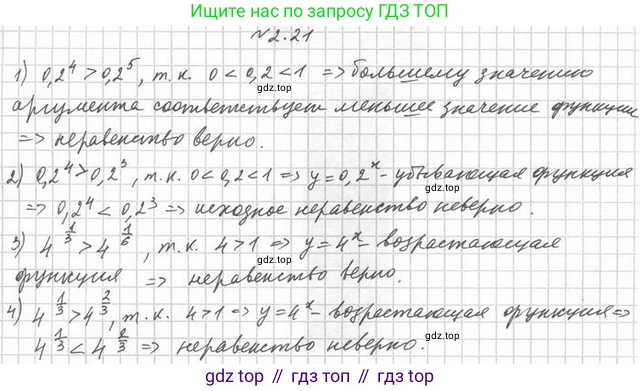 Ищите нас по запросу ГДЗ ТОП
№2.21
1) 0,2⁴ > 0,2⁵, т.к. 0 < 0,2 < 1 => большему значению
gdz.top
аргумента соответствует меньшее значение функции
=> неравенство верно.
gdz.top
2) 0,2⁴ > 0,2³, т.к. 0 < 0,2 < 1 => y = 0,2ˣ - убывающая функция
gdz.top
=> 0,2⁴ < 0,2³ => исходное неравенство неверно.
3) 4^(1/3) > 4^(1/6), т.к. 4 > 1 => y = 4ˣ - возрастающая
gdz.top
функция => неравенство верно.
4) 4^(1/3) > 4^(2/3), т.к. 4 > 1 => y = 4ˣ - возрастающая функция =>
gdz.top
4^(1/3) < 4^(2/3) => неравенство неверно.
gdz.top
gdz.top // гдз.топ // гдз.top